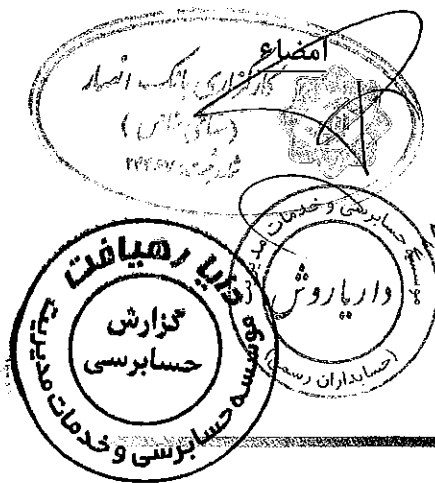 امضاء
کارگزاری بانک انصار
(سهامی خاص)
شماره ثبت:
موسسه حسابرسی و خدمات مدیریت
داریا روش
(حسابداران رسمی)
دایا رهیافت
گزارش
حسابرسی
موسسه حسابرسی و خدمات مدیریت